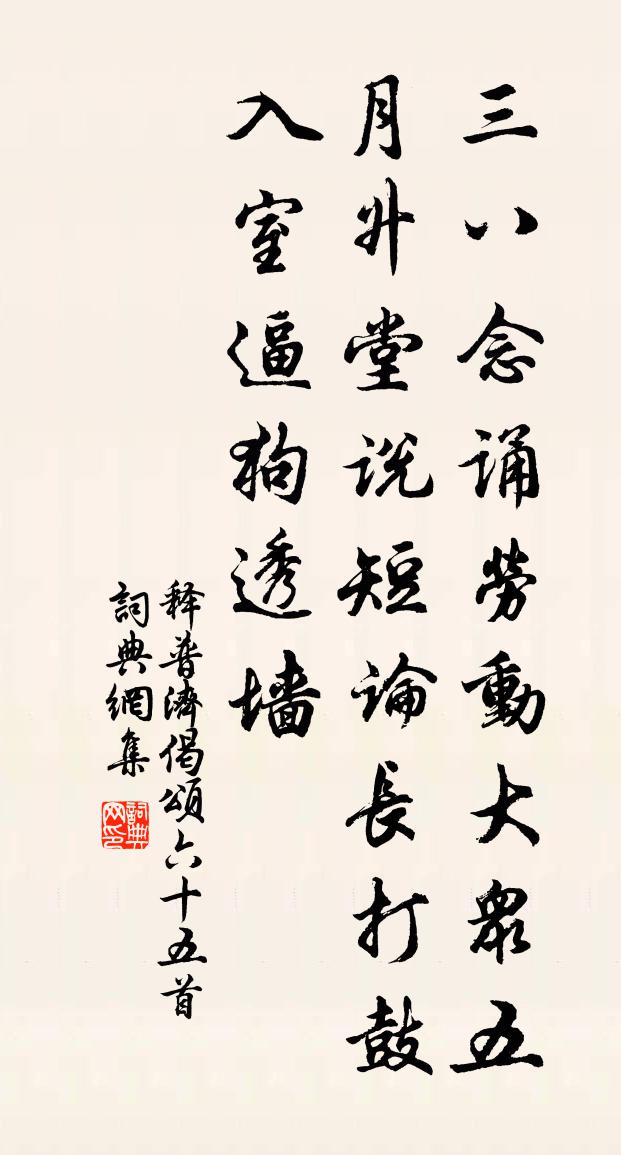 三八念誦勞動大衆五
月升堂说短論長打鼓
入室逼狗透墙
释普濟偈頌六十五首
詞典網集
詞典网印